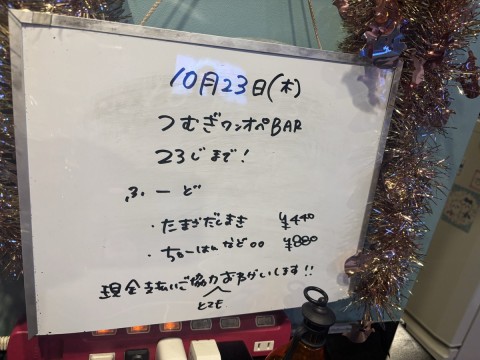 10月23日(木)
つむぎワンオペBAR
23じまで!
ふーど
・たまごだしまき ¥440
・ちゃーはんなど○○ ¥880
現金支払いご協力おねがいします!!
とても